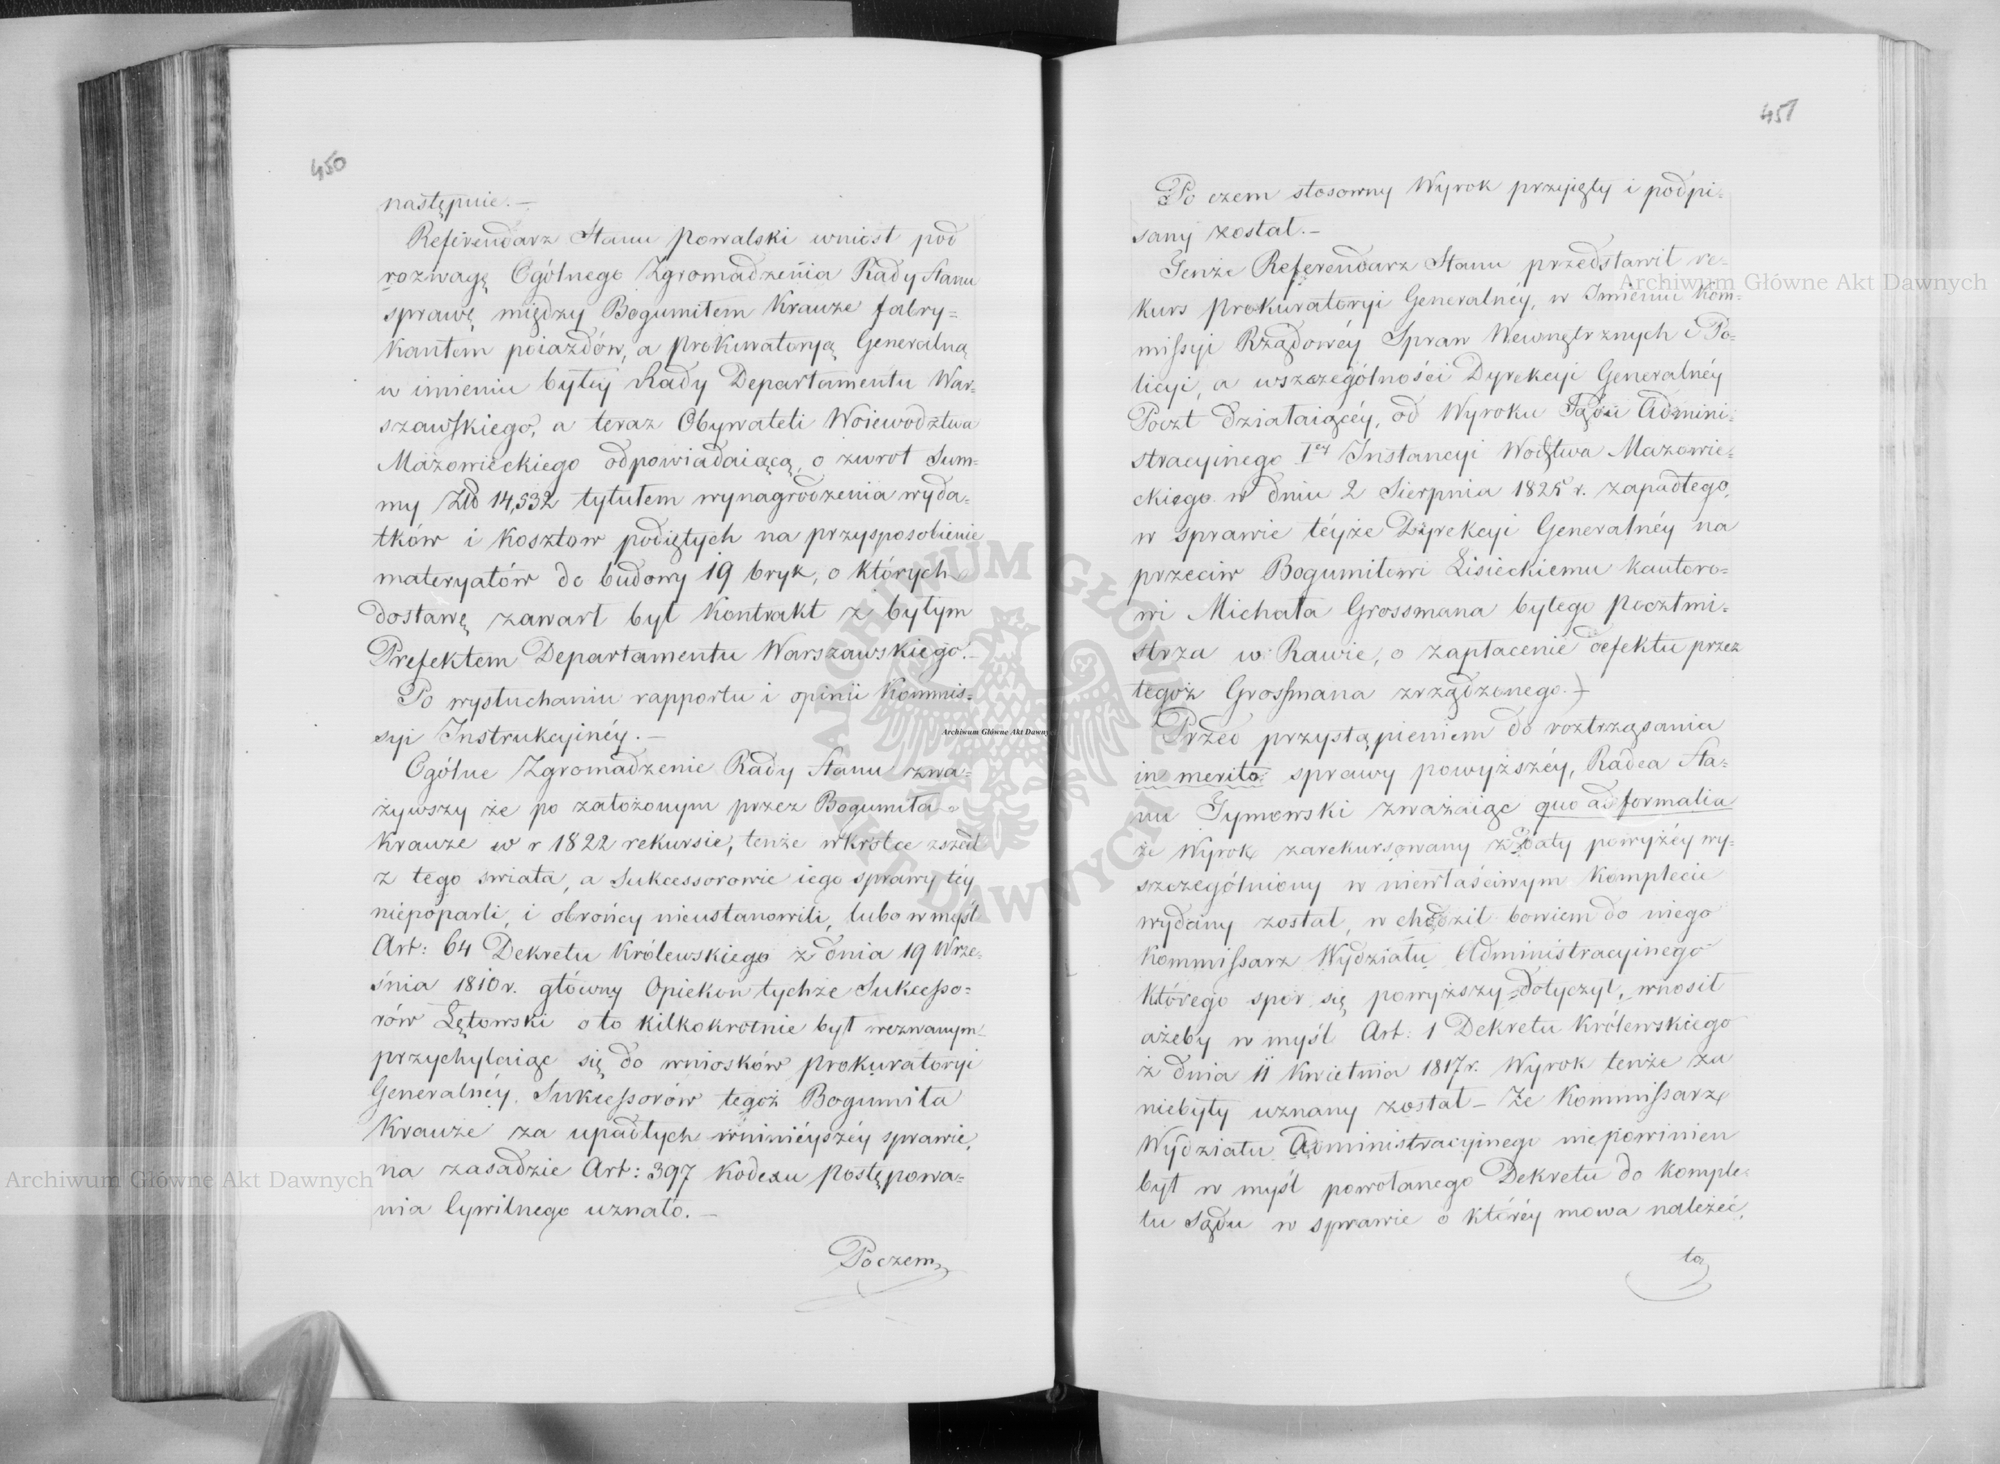 450
następnie. —
Referendarz Stanu Kowalski wniosł pod
rozwagę Ogólnego Zgromadzenia Rady Stanu
sprawę między Bogumiłem Krauze fabry=
kantem poiazdów, a Prokuratoryą Generalną
w imieniu byłéy Rady Departamentu War=
szawskiego, a teraz Obywateli Woiewodztwa
Mazowieckiego odpowiadaiącą, o zwrot Sum=
my Złp 14,532 tytułem wynagrodzenia wyda=
tków i kosztów podiętych na przysposobienie
materyałów do budowy 19 bryk, o których
dostawę zawart był Kontrakt z byłym
Prefektem Departamentu Warszawskiego. —
Po wysłuchaniu rapportu i opinii Kommis=
syi Instrukcyinéy. —
Ogólne Zgromadzenie Rady Stanu zwa=
żywszy że po założonym przez Bogumiła
Krauze w r 1822 rekursie, tenże wkrótce zszedł
z tego swiata, a Sukcessorowie iego sprawy téy
niepoparli, i obrońcy nieustanowili, lubo w myśl
Art: 64 Dekretu Królewskiego z dnia 19 Wrze=
śnia 1810 r. główny Opiekun tychże Sukcesso=
rów Łętowski o to kilkokrotnie był wezwanym
przychylaiąc się do wniosków Prokuratoryi
Generalnéy, Sukcessorów tegoż Bogumiła
Krauze za upadłych w ninieyszéy sprawie,
na zasadzie Art: 397 Kodexu Postępowa=
nia Cywilnego uznało. —
Poczem
451
Po czem stosowny Wyrok przyięty i podpi=
sany został. —
Tenże Referendarz Stanu przedstawił re=
kurs Prokuratoryi Generalnéy, w Imieniu Kom=
missyi Rządowéy Spraw Wewnętrznych i Po=
licyi, a wszczególności Dyrekcyi Generalnéy
Poczt działaiącéy, od Wyroku Sądu Admini=
stracyinego Iey Instancyi Wodztwa Mazowie=
ckiego w dniu 2 Sierpnia 1825 r. zapadłego,
w sprawie téyże Dyrekcyi Generalnéy na
przeciw Bogumiłowi Lisieckiemu kantoro=
wi Michała Grossmana byłego Pocztmi=
strza w Rawie, o zapłacenie defektu przez
tegoż Grossmana zrządzonego.
Przed przystąpieniem do roztrząsania
in merito sprawy powyższéy, Radca Sta=
nu Tymowski zważaiąc quo ad formalia
że Wyrok zarekursowany z daty powyżéy wy=
szczególniony w niewłaściwym komplecie
wydany został, wchodził bowiem do niego
Kommissarz Wydziału Administracyinego
którego spór się powyższy dotyczył, wnosił
ażeby w myśl Art: 1 Dekretu Królewskiego
z dnia 11 Kwietnia 1817 r. Wyrok tenże za
niebyły uznany został — Że Kommissarz
Wydziału Administracyinego niepowinien
był w myśl powołanego Dekretu do komple=
tu Sądu w sprawie o któréy mowa należéć,
to
Archiwum Główne Akt Dawnych
Archiwum Główne Akt Dawnych
Archiwum Główne Akt Dawnych
ARCHIWUM GŁÓWNE AKT DAWNYCH